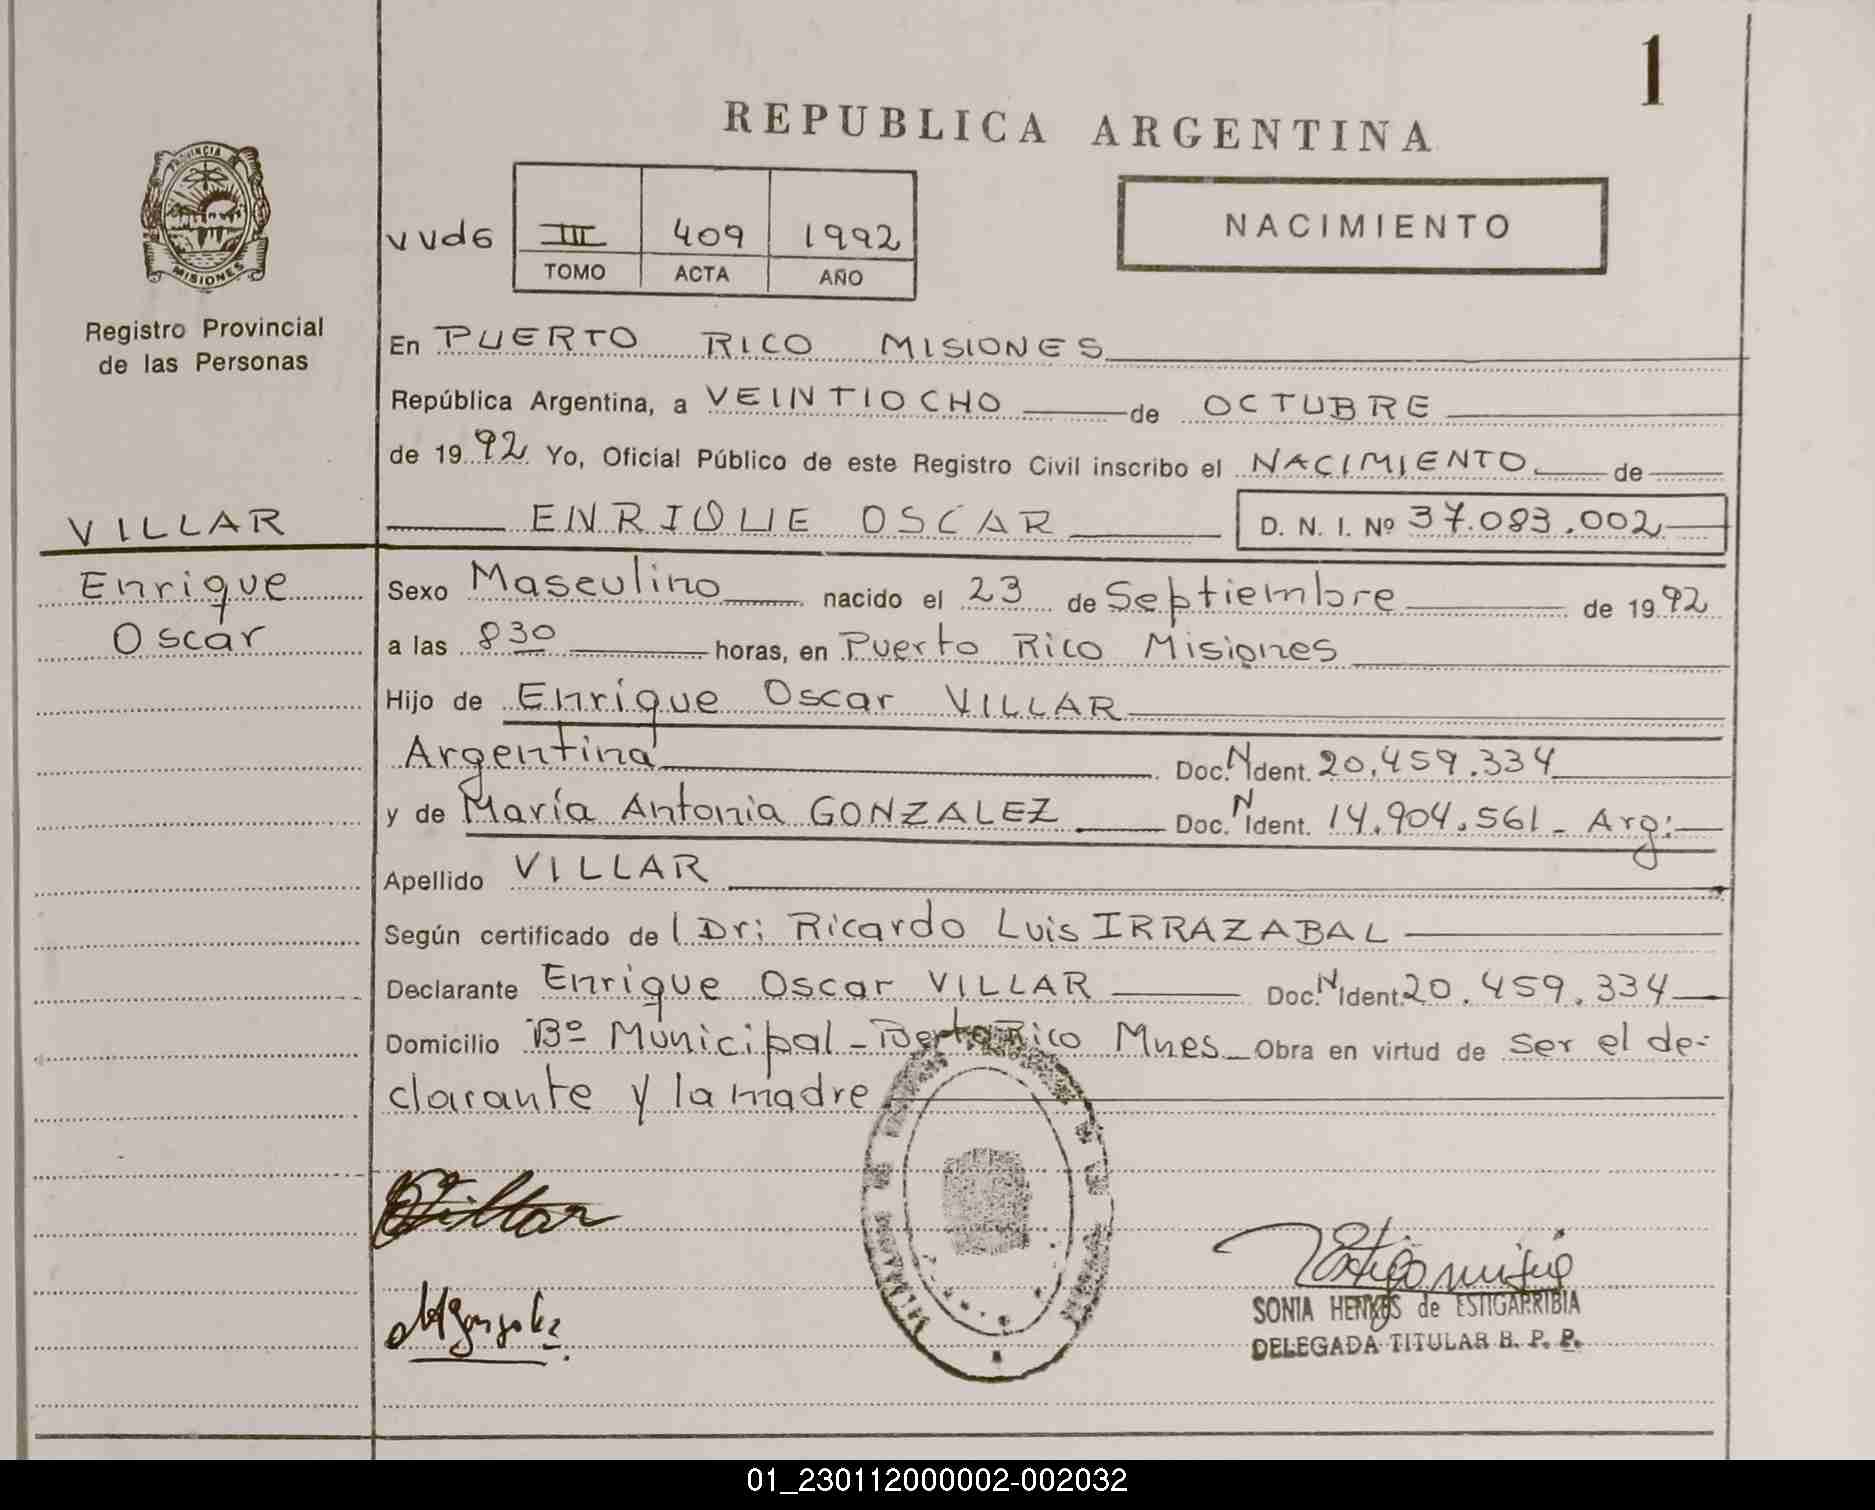 1
REPUBLICA ARGENTINA
PROVINCIA DE
MISIONES
Registro Provincial
de las Personas
VVd6
III 409 1992
TOMO ACTA AÑO
NACIMIENTO
En PUERTO RICO MISIONES
República Argentina, a VEINTIOCHO de OCTUBRE
de 1992 Yo, Oficial Público de este Registro Civil inscribo el NACIMIENTO de
VILLAR
ENRIQUE OSCAR D. N. I. Nº 37.083.002
Enrique
Oscar
Sexo Masculino nacido el 23 de Septiembre de 1992
a las 8 30 horas, en Puerto Rico Misiones
Hijo de Enrique Oscar VILLAR
Argentina Doc. N Ident. 20.459.334
y de María Antonia GONZALEZ Doc. N Ident. 14.904.561 - Arg:
Apellido VILLAR
Según certificado de l Dr: Ricardo Luis IRRAZABAL
Declarante Enrique Oscar VILLAR Doc. N Ident. 20.459.334
Domicilio Bº Municipal - Puerto Rico Mnes - Obra en virtud de ser el de-
clarante y la madre
Villar
SONIA HENKES de ESTIGARRIBIA
DELEGADA TITULAR R. P. P.
01_230112000002-002032